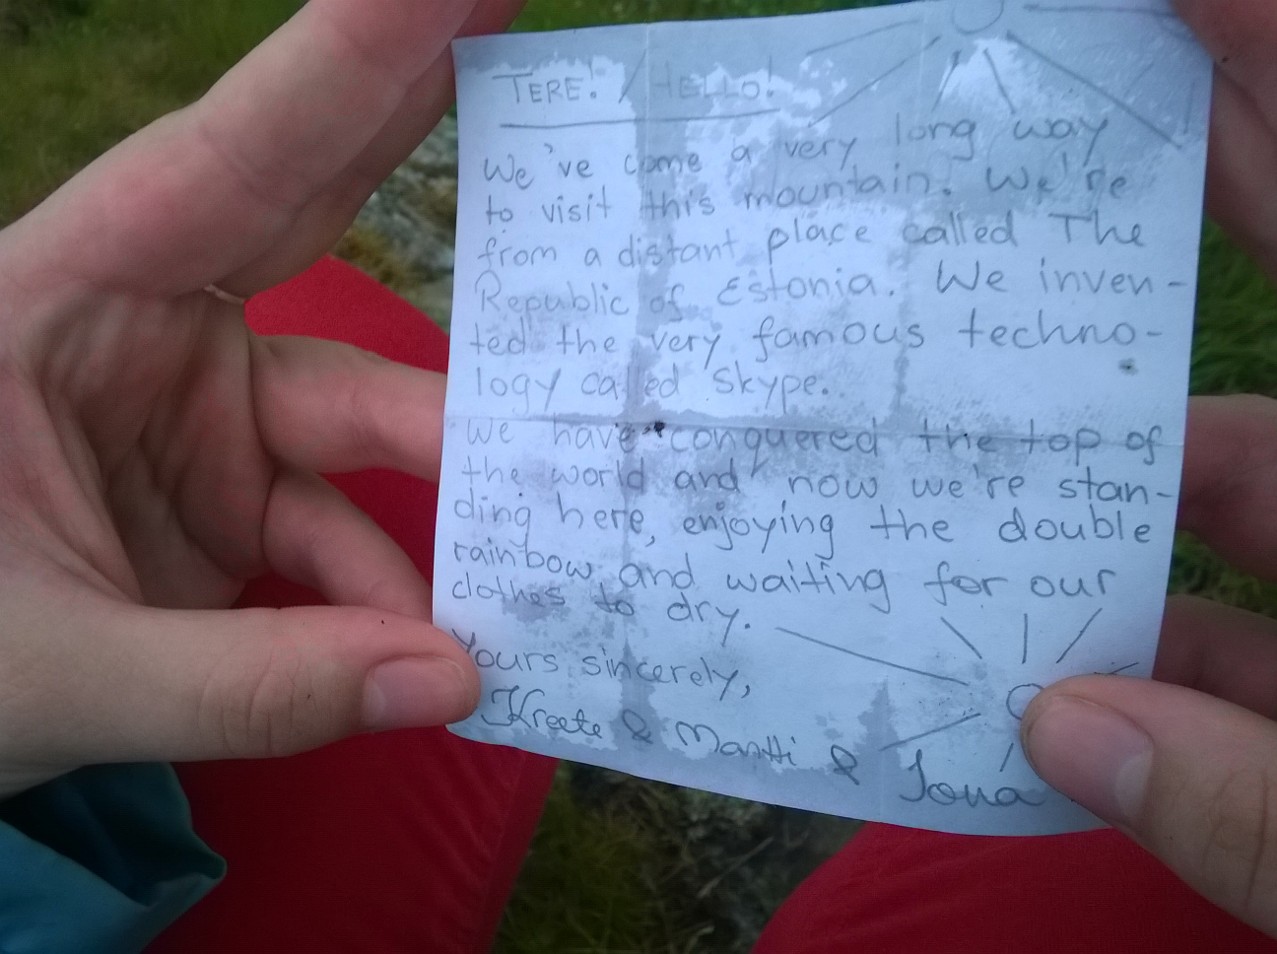 TERE! / HELLO!
We've come a very long way
to visit this mountain. We're
from a distant place called The
Republic of Estonia. We inven-
ted the very famous techno-
logy called Skype.
We have conquered the top of
the world and now we're stan-
ding here, enjoying the double
rainbow and waiting for our
clothes to dry.
Yours sincerely,
Kreete & Mantti & Joua